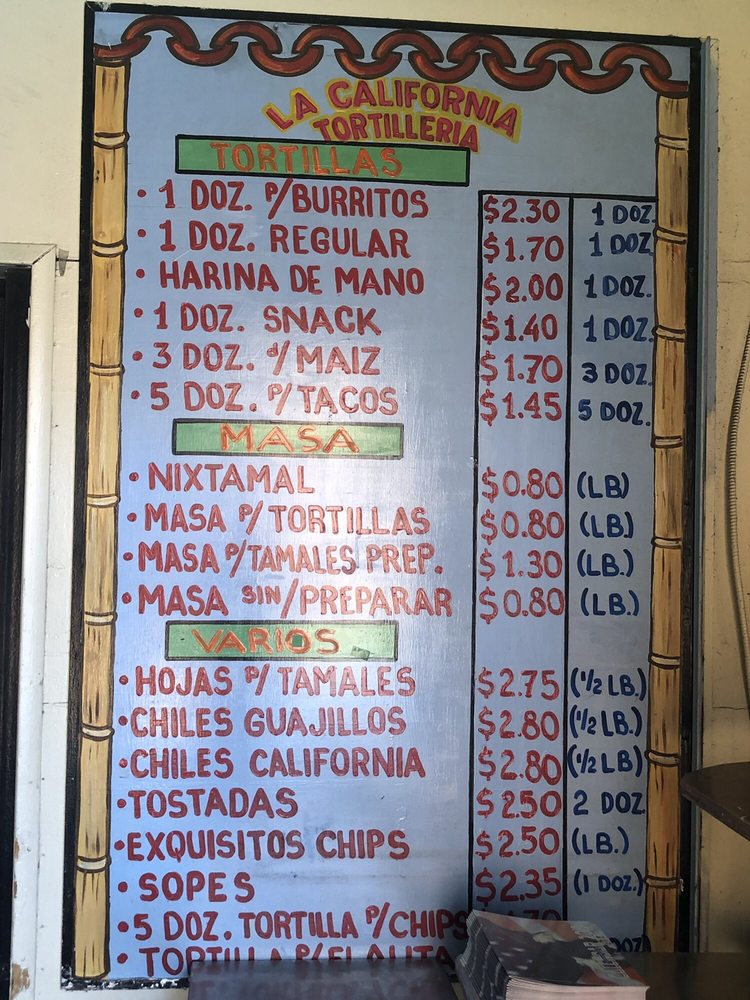 LA CALIFORNIA
TORTILLERIA
TORTILLAS
• 1 DOZ. P/BURRITOS $2.30 1 DOZ.
• 1 DOZ. REGULAR $1.70 1 DOZ
• HARINA DE MANO $2.00 1 DOZ.
• 1 DOZ. SNACK $1.40 1 DOZ.
• 3 DOZ. d/MAIZ $1.70 3 DOZ.
• 5 DOZ. P/TACOS $1.45 5 DOZ.
MASA
• NIXTAMAL $0.80 (LB)
• MASA P/TORTILLAS $0.80 (LB.)
• MASA P/TAMALES PREP. $1.30 (LB.)
• MASA SIN/PREPARAR $0.80 (LB.)
VARIOS
• HOJAS P/TAMALES $2.75 (1/2 LB.)
• CHILES GUAJILLOS $2.80 (1/2 LB.)
• CHILES CALIFORNIA $2.80 (1/2 LB)
• TOSTADAS $2.50 2 DOZ
• EXQUISITOS CHIPS $2.50 (LB.)
• SOPES $2.35 (1 DOZ.)
• 5 DOZ. TORTILLA P/CHIPS
• TORTILLA